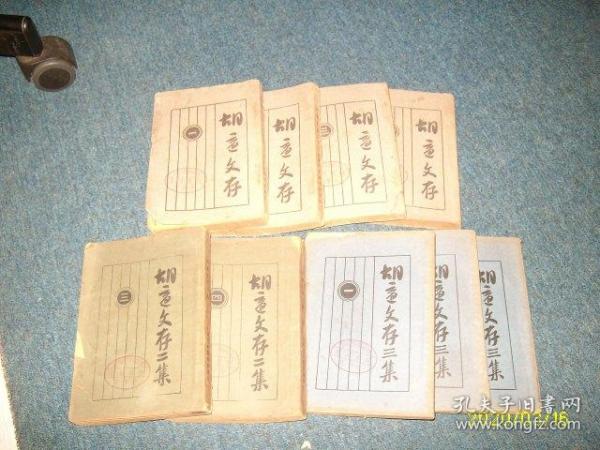 胡适文存
一
胡适文存
胡适文存
三
胡适文存
胡适文存二集
三
胡适文存二集
四
胡适文存三集
一
胡适文存三集
胡适文存三集
孔夫子旧书网
www.kongfz.com